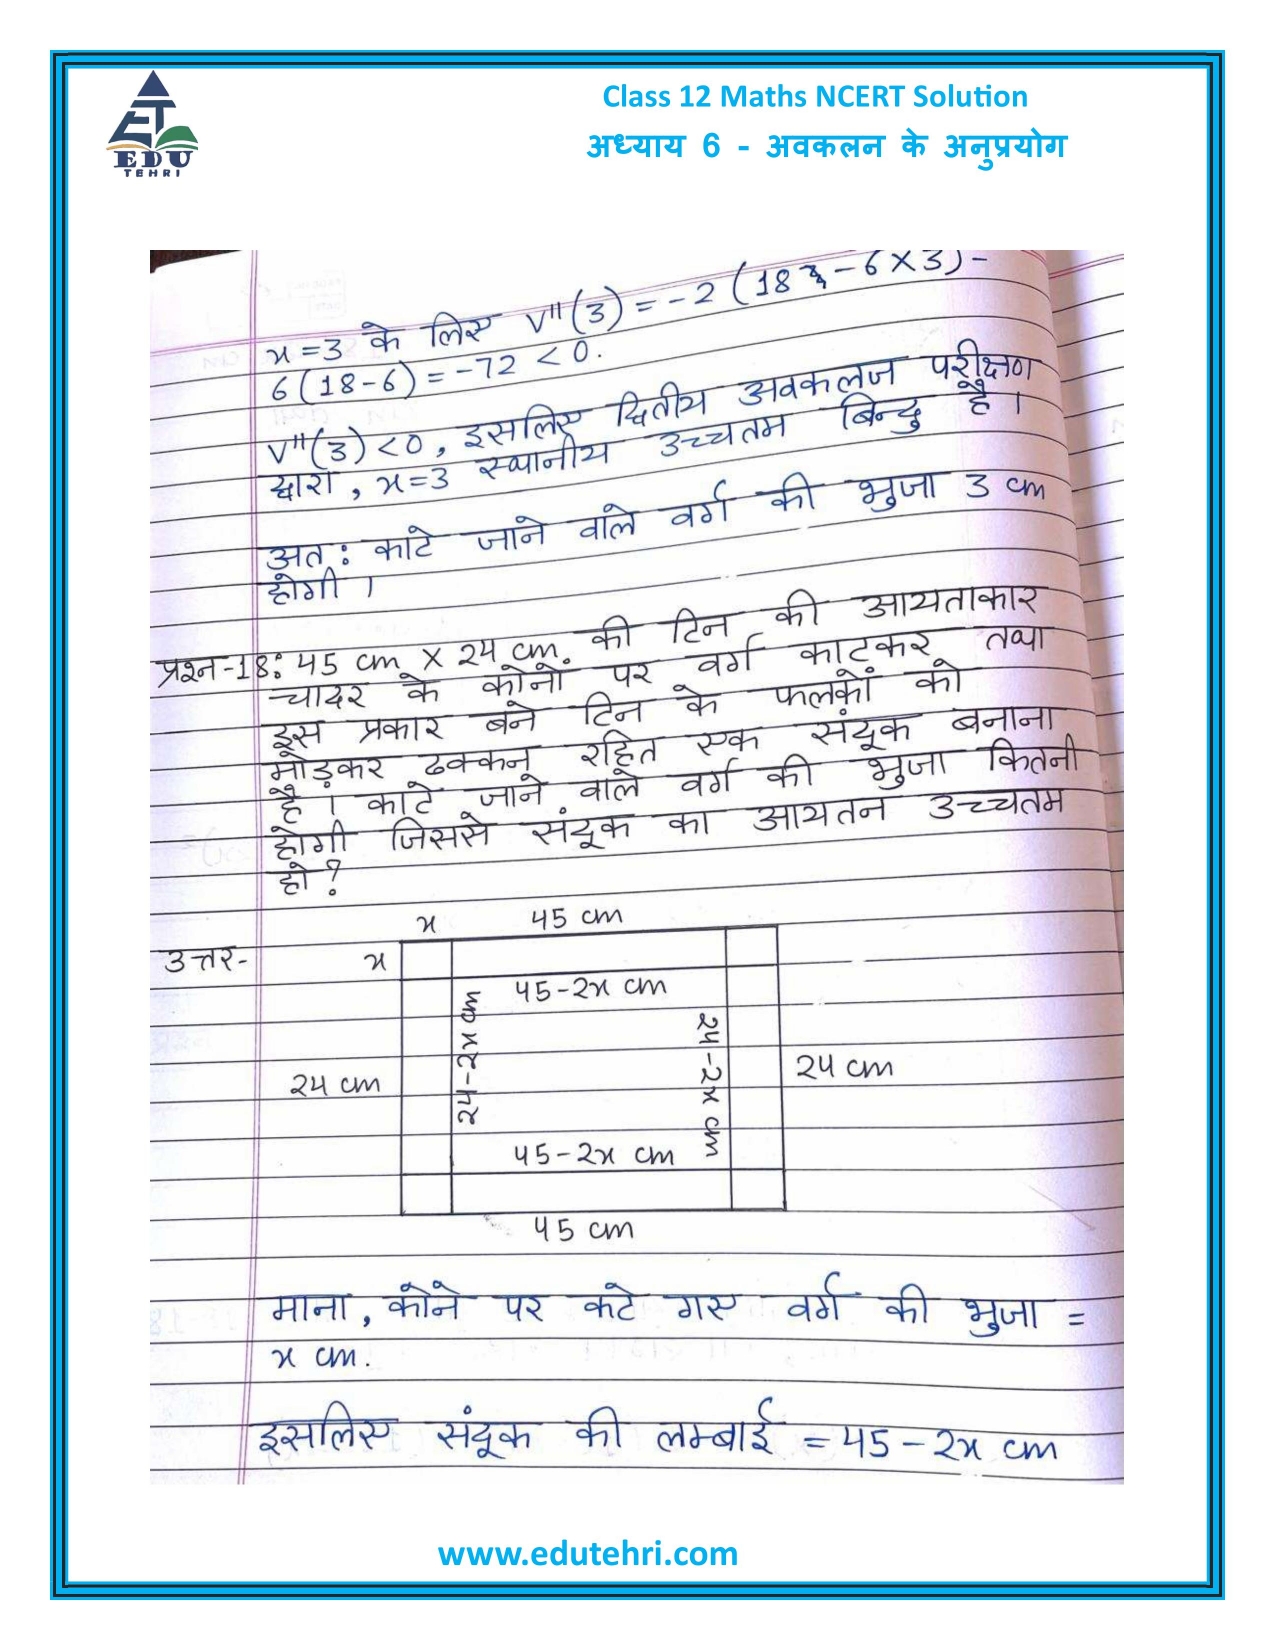 EDU
TEHRI
Class 12 Maths NCERT Solution
अध्याय 6 - अवकलन के अनुप्रयोग
x=3 के लिए V"(3) = -2 (18 - 6×3) -
6(18-6) = -72 < 0.
V"(3) <0, इसलिए द्वितीय अवकलज परीक्षण
द्वारा, x=3 स्थानीय उच्चतम बिन्दु है।
अत: काटे जाने वाले वर्ग की भुजा 3 cm
होगी।
प्रश्न-18: 45 cm × 24 cm. की टिन की आयताकार
चादर के कोनों पर वर्ग काटकर तथा
इस प्रकार बने टिन के फलकों को
मोड़कर ढक्कन रहित एक संदूक बनाना
है। काटे जाने वाले वर्ग की भुजा कितनी
होगी जिससे संदूक का आयतन उच्चतम
हो?
x 45 cm
उत्तर- x
45-2x cm
24-2x cm
24-2x cm
24 cm
24 cm
45-2x cm
45 cm
माना, कोने पर कटे गए वर्ग की भुजा =
x cm.
इसलिए संदूक की लम्बाई = 45-2x cm
www.edutehri.com